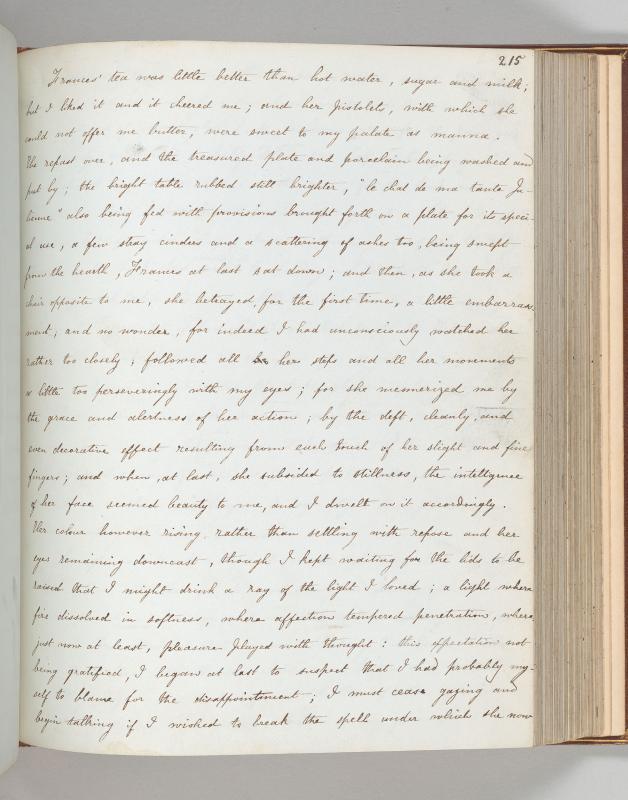 215
Frances' tea was little better than hot water, sugar and milk;
but I liked it and it cheered me; and her pistolets, with which she
could not offer me butter, were sweet to my palate as manna.
The repast over, and the treasured plate and porcelain being washed and
put by; the bright table rubbed still brighter, "le chat de ma tante Ju-
lienne" also being fed with provisions brought forth on a plate for its speci-
al use, a few stray cinders and a scattering of ashes too, being swept
from the hearth, Frances at last sat down; and then, as she took a
chair opposite to me, she betrayed, for the first time, a little embarrass-
ment; and no wonder, for indeed I had unconsciously watched her
rather too closely; followed all her steps and all her movements
a little too perseveringly with my eyes; for she mesmerized me by
the grace and alertness of her action; by the deft, cleanly, and
even decorative effect resulting from each touch of her slight and fine
fingers; and when, at last, she subsided to stillness, the intelligence
of her face seemed beauty to me, and I dwelt on it accordingly.
Her colour however rising, rather than settling with repose and her
eyes remaining downcast, though I kept waiting for the lids to be
raised that I might drink a ray of the light I loved; a light where
fire dissolved in softness, where affection tempered penetration, where
just now at least, pleasure played with thought: this expectation not
being gratified, I began at last to suspect that I had probably my-
self to blame for the disappointment; I must cease gazing and
begin talking if I wished to break the spell under which she now